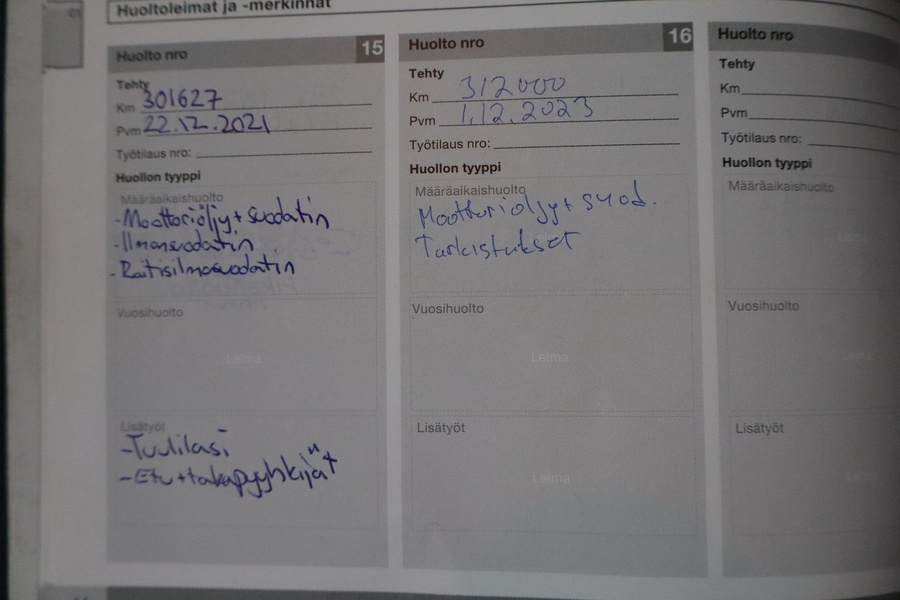 01
Huoltoleimat ja -merkinnät
Huolto nro 15
Tehty
Km 301627
Pvm 22.12.2021
Työtilaus nro:
Huollon tyyppi
Määräaikaishuolto
-Moottoriöljy+suodatin
-Ilmansuodatin
-Raitisilmasuodatin
Vuosihuolto
Leima
Lisätyöt
-Tuulilasi
-Etu+takapyyhkijät
Huolto nro 16
Tehty
Km 312000
Pvm 1.12.2023
Työtilaus nro:
Huollon tyyppi
Määräaikaishuolto
Moottoriöljy+ suod.
Tarkistukset
Vuosihuolto
Leima
Lisätyöt
Leima
Huolto nro
Tehty
Km
Pvm
Työtilaus nro:
Huollon tyyppi
Määräaikaishuolto
Vuosihuolto
Lisätyöt